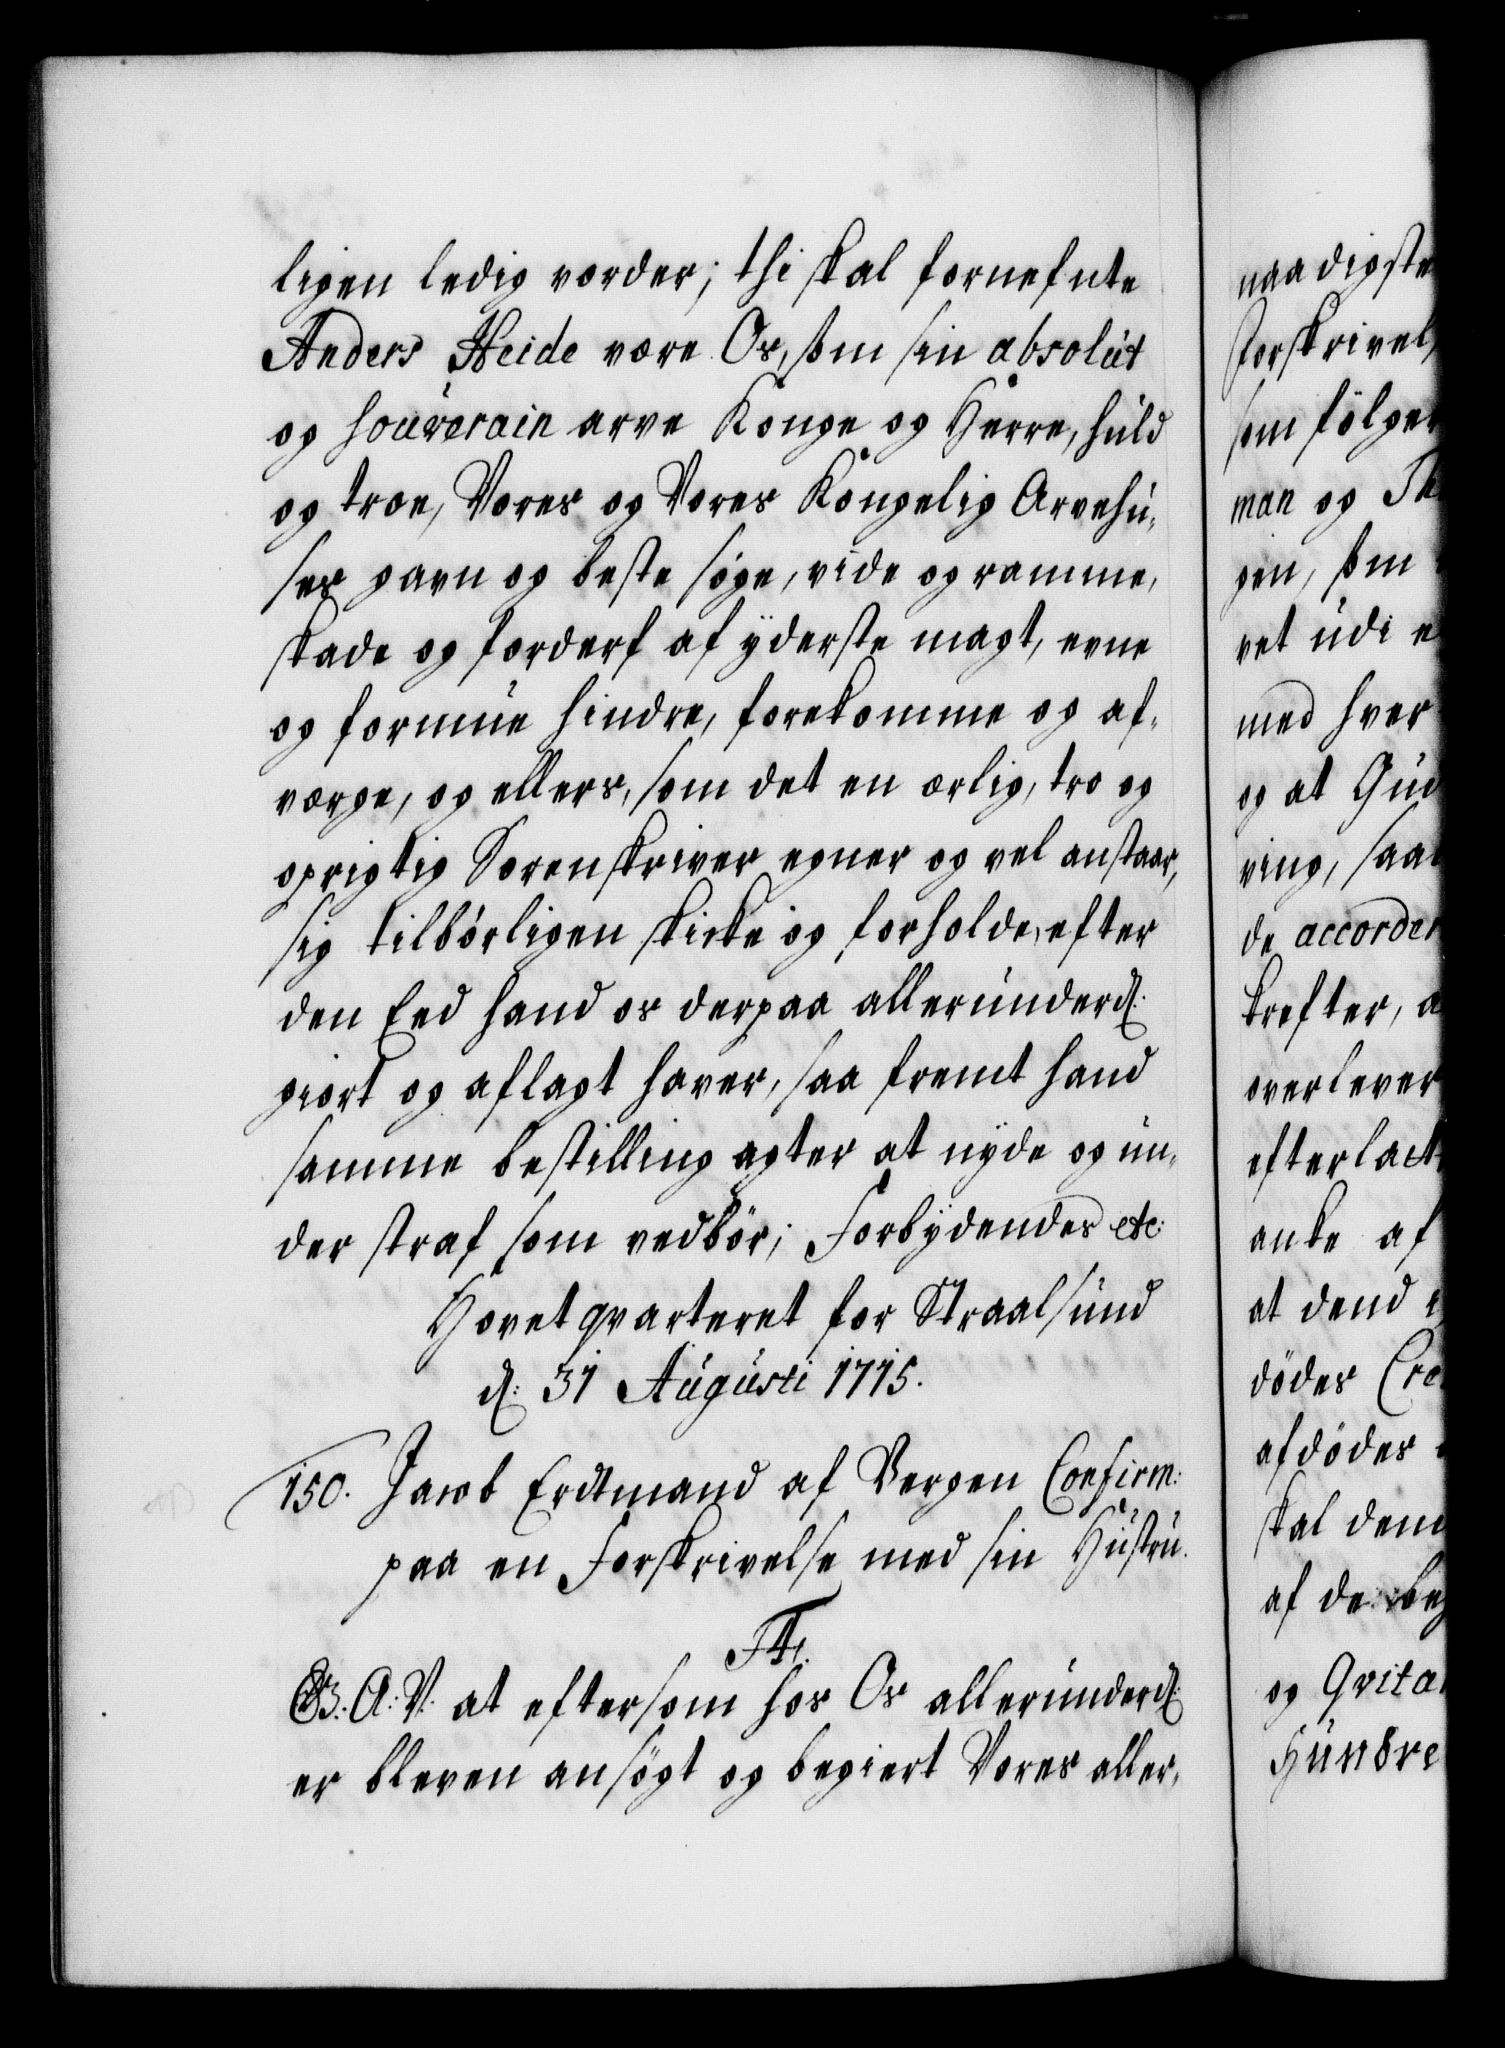 ligen ledig vorder; thi skal fornefnte
Anders Heide være Os, som sin absolut
og souverain arve Konge og Herre, huld
og troe, Vores og Vores Kongelig Arvehu-
ses gavn og beste søge, vide og ramme,
skade og forderf af yderste magt, evne
og formue hindre, forekomme og af-
verge, og ellers, som det en ærlig, tro og
oprigtig Sorenskriver egner og vel anstaar,
sig tilbørligen skicke og forholde, efter
den Eed hand os derpaa allerunderd:
giort og aflagt haver, saa fremt hand
samme bestilling agter at nyde og un-
der straf som vedbør; Forbydendes etc:
Hovetqvarteret for Straalsund
d: 31 Augusti 1715.
150. Jacob Erdtmand af Bergen Confirm:
paa en Forskrivelse med sin Hustru.
F4.
G: A: V: at eftersom hos Os allerunderd:
er bleven ansøgt og begiert Vores aller-
naadigste
Forskrivel
som følger
man og
gen, som
vet udi e
med hver
og at Gud
ving, saa
de accorder
krefter, a
overlever
efterlact
anke af
at dend
dødes Cre
afdødes
skal dem
af de be
og Qvita
Hundre